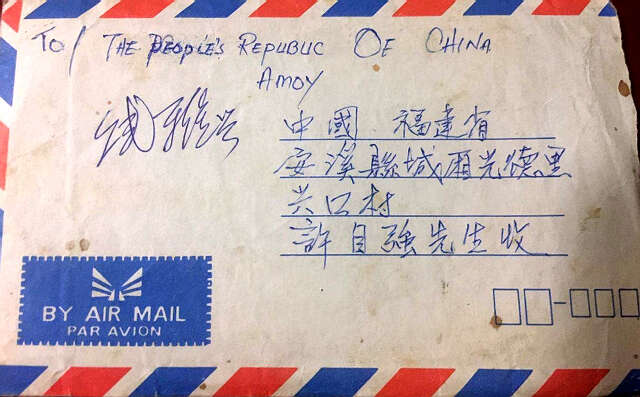 To/ THE PEOPLE'S REPUBLIC OF CHINA
AMOY
中國 福建省
安溪縣城廂光德里
兴口村
許自強先生收
BY AIR MAIL
PAR AVION